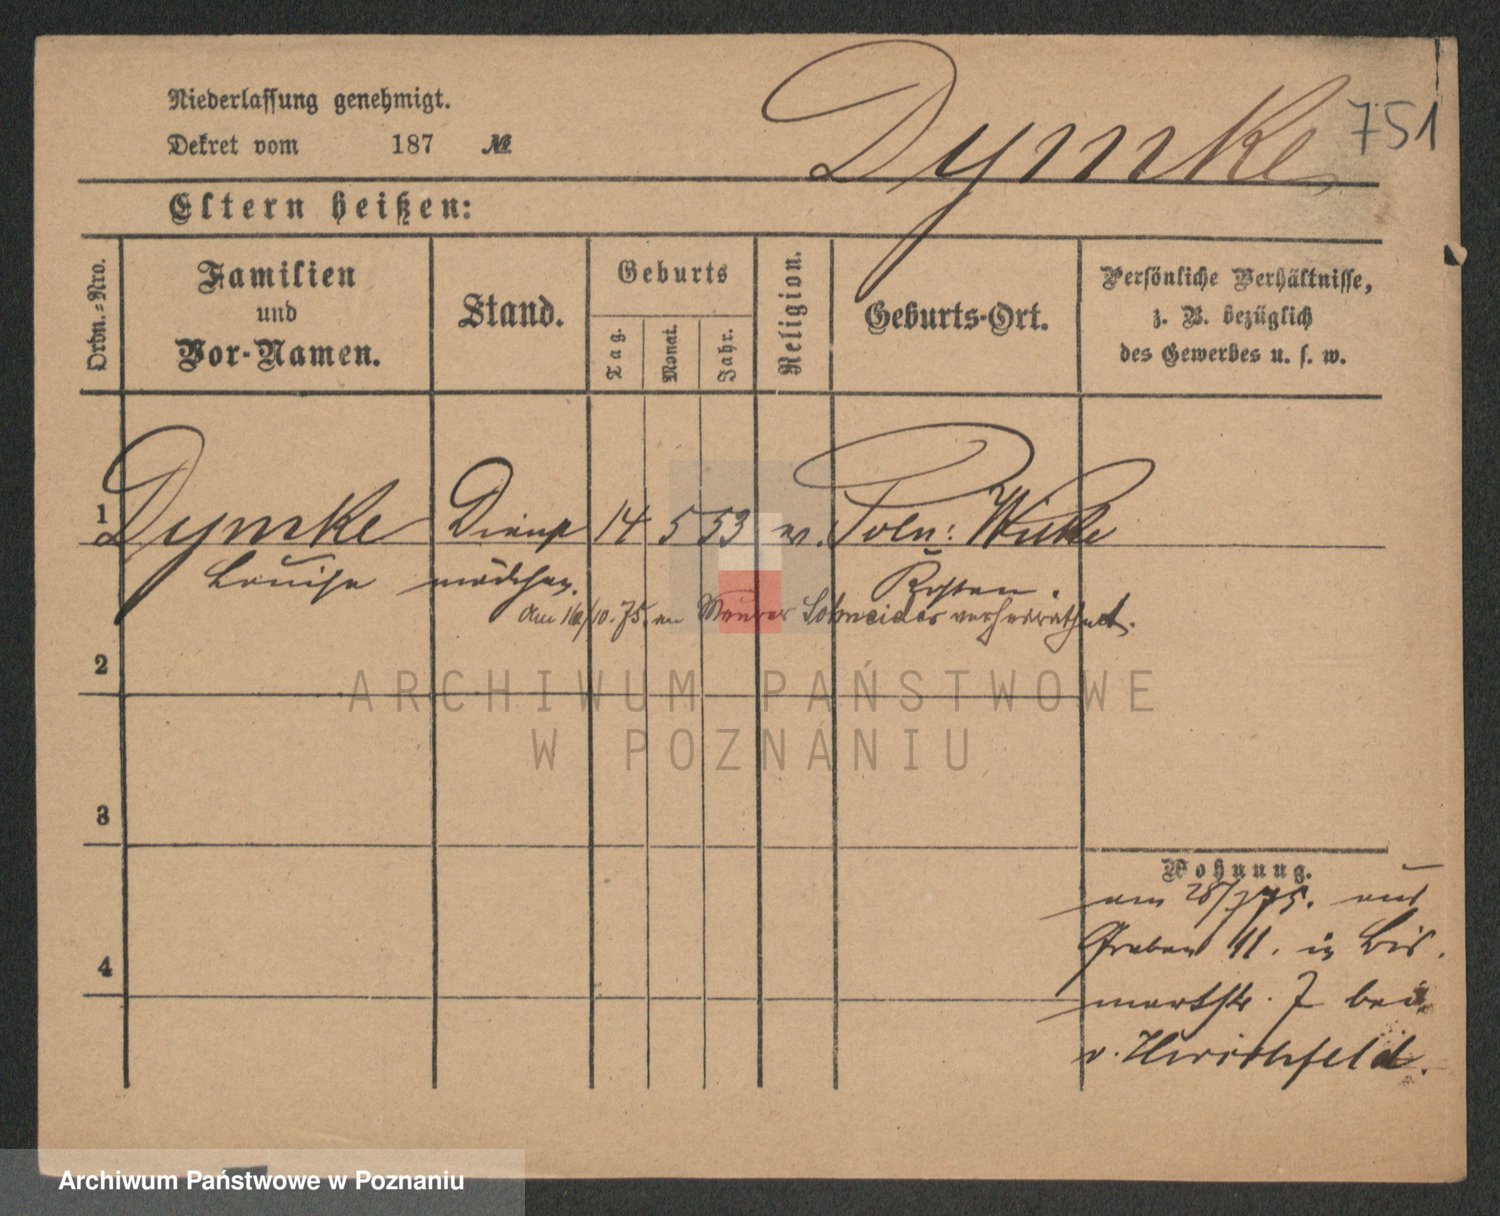 Niederlassung genehmigt.
Dekret vom 187 №
Dymke
751
Eltern heißen:
Ordn.-Nro.
Familien
und
Vor-Namen.
Stand.
Geburts
Tag.
Monat.
Jahr.
Religion.
Geburts-Ort.
Persönliche Verhältnisse,
z. B. bezüglich
des Gewerbes u. s. w.
1 Dymke Dienst 14 5 53 ev. Poln: Wilke
Louise mädchen. Kosten.
Am 16/10. 75. an Maurer Schneider verheirathet.
2
ARCHIWUM PAŃSTWOWE
W POZNANIU
3
Wohnung.
am 28/7 75. aus
Graben 11. in Bis-
markstr. 7 bei
v. Hirschfeld.
4
Archiwum Państwowe w Poznaniu